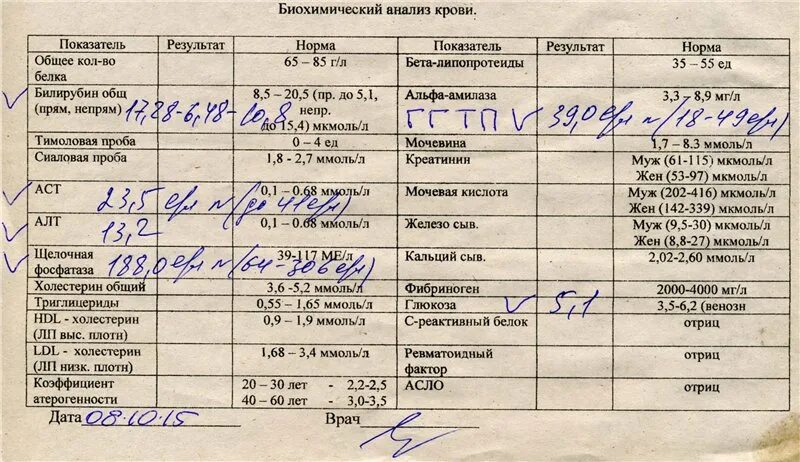 Биохимический анализ крови.
Показатель Результат Норма Показатель Результат Норма
Общее кол-во белка 65 – 85 г/л Бета-липопротеиды 35 – 55 ед
Билирубин общ 8,5 – 20,5 (пр. до 5,1, Альфа-амилаза 3,3 – 8,9 мг/л
(прям, непрям) 17,28-6,48-10,8 непр. ГГТП 39,0 ед/л N (18-49 ед/л)
до 15,4) мкмоль/л
Тимоловая проба 0 – 4 ед Мочевина 1,7 – 8.3 ммоль/л
Сиаловая проба 1,8 - 2,7 ммоль/л Креатинин Муж (61-115) мкмоль/л
Жен (53-97) мкмоль/л
АСТ 23,5 ед/л N (до 41 ед/л) 0,1 – 0.68 ммоль/л Мочевая кислота Муж (202-416) мкмоль/л
Жен (142-339) мкмоль/л
АЛТ 13,2 0,1 – 0.68 ммоль/л Железо сыв. Муж (9,5-30) мкмоль/л
Жен (8,8-27) мкмоль/л
Щелочная 39-117 МЕ/л Кальций сыв. 2,02-2,60 ммоль/л
фосфатаза 188,0 ед/л N (64-306 ед/л)
Холестерин общий 3,6 -5,2 ммоль/л Фибриноген 2000-4000 мг/л
Триглицериды 0,55 – 1,65 ммоль/л Глюкоза 5,1 3,5-6,2 (венозн
HDL - холестерин 0,9 – 1,9 ммоль/л С-реактивный белок отриц
(ЛП выс. плотн)
LDL - холестерин 1,68 – 3,4 ммоль/л Ревматоидный отриц
(ЛП низк. плотн) фактор
Коэффициент 20 – 30 лет - 2,2-2,5 АСЛО отриц
атерогенности 40 – 60 лет - 3,0-3,5
Дата 08.10.15 Врач